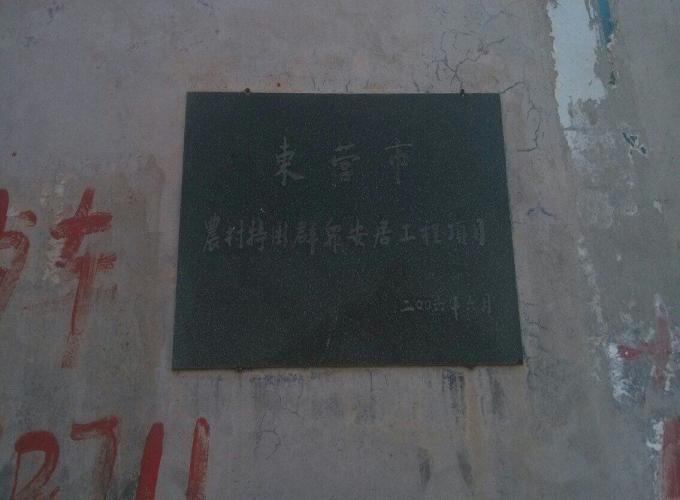 東营市
農村特困群众安居工程項目
二00六年六月
车
2711